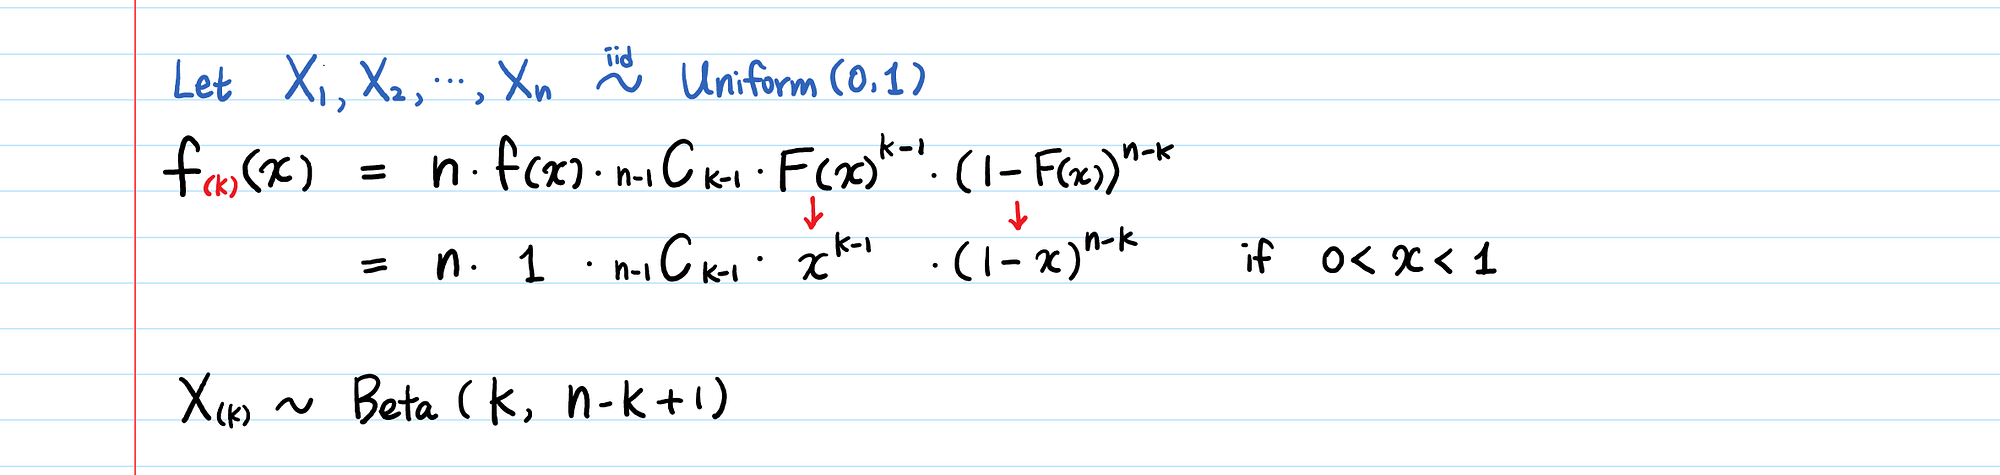 Let X₁, X₂, ⋯, Xₙ iid ~ Uniform (0,1)
f₍ₖ₎(x) = n · f(x) · ₙ₋₁Cₖ₋₁ · F(x)ᵏ⁻¹ · (1-F(x))ⁿ⁻ᵏ
↓ ↓
= n · 1 · ₙ₋₁Cₖ₋₁ · xᵏ⁻¹ · (1-x)ⁿ⁻ᵏ if 0 < x < 1
X₍ₖ₎ ~ Beta (k, n-k+1)